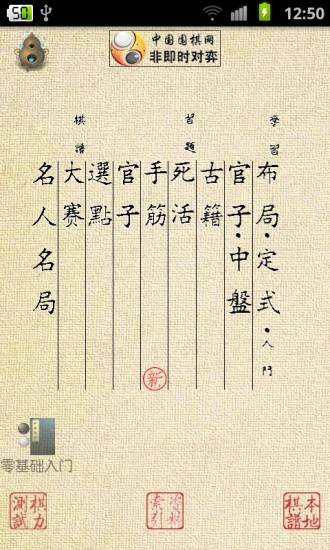 50
12:50
中国围棋网
非即时对弈
學習
布局·定式·入門
官子·中盤
古籍
習題
死活
手筋
新
官子
選點
棋譜
大赛
名人名局
零基础入门
棋力
測試
索引
本地
棋譜